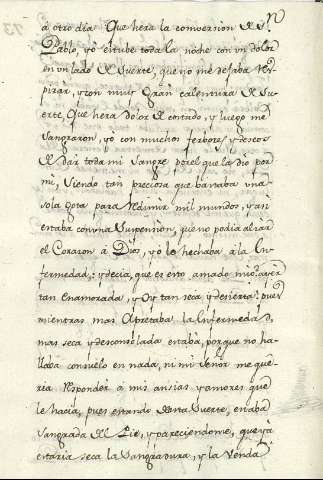 á otro día Que hera la conversion de S.ⁿ
Pablo, yó estube toda la noche con vn dolor
en vn lado de suerte, que no me dejaba res-
pirar, y con muy gran calentura de su-
erte Que hera dolor de costado, y luego me
sangraron, yó con muchos ferbores y deseos
de dar toda mi sangre por el que la dio por
mi, siendo tan preciosa que bastaba vna
sola gota para redimir mil mundos, y an
estaba con vna suspension, que no podía alsar
el Corason á Dios, yó lo hechaba á la En-
fermedad,: y decia, que es esto amado mio: ayer
tan enamorada, y oy tan seca y desierta: pues
mientras mas apretaba la enfermedad,
mas seca y desconsolada estaba, porque no ha-
llaba consuelo en nada, ni mi Señor me que-
ria responder a mis ansias y amores que
le hacia, pues estando de esta suerte, estaba
sangrada del Pie, y pareciendome, que ya
estaria seca la sangradura, y la venda